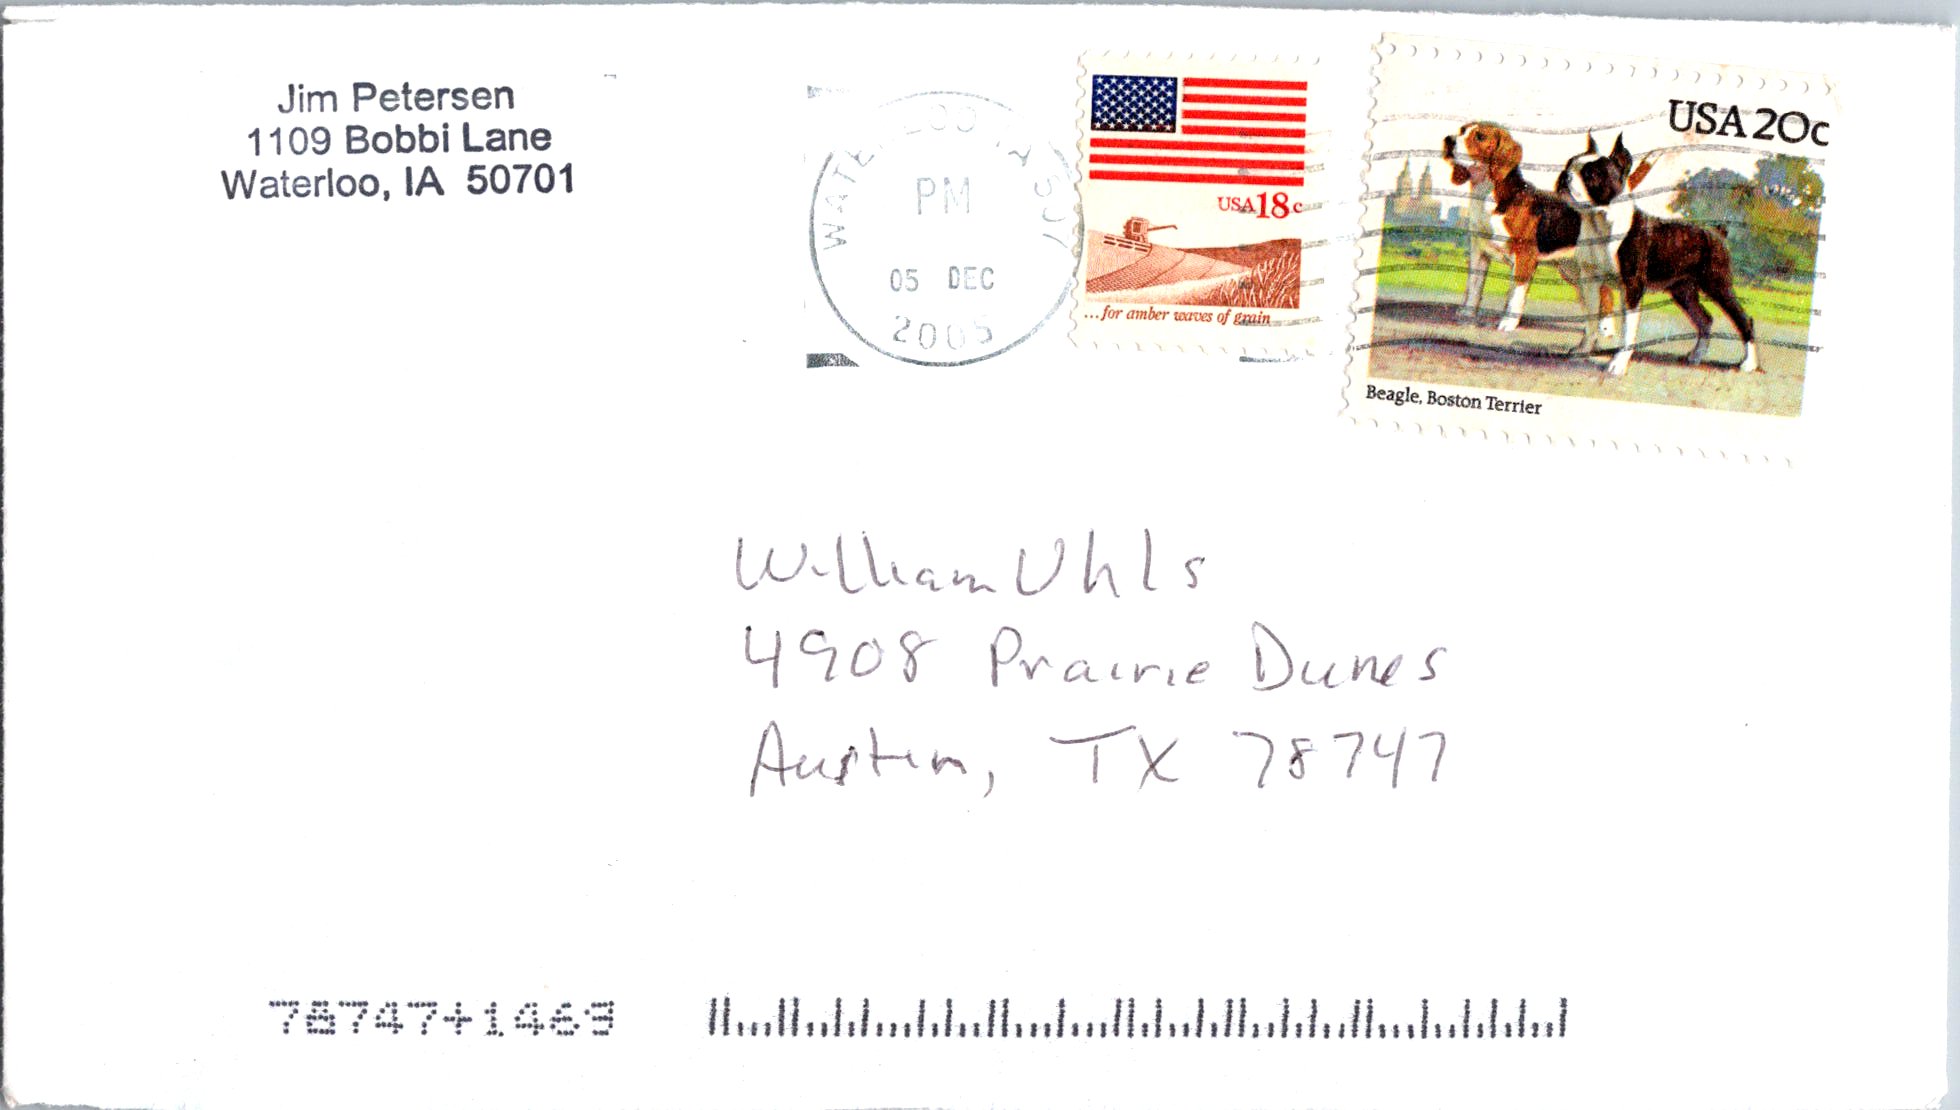 Jim Petersen
1109 Bobbi Lane
Waterloo, IA 50701
PM
05 DEC
2005
USA 18c
...for amber waves of grain
USA 20c
Beagle, Boston Terrier
William Uhls
4908 Prairie Dunes
Austin, TX 78747
78747+1463